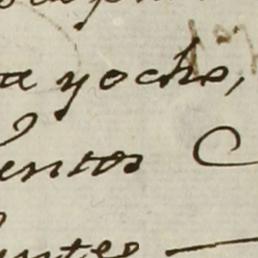 a yocho,
entos C
entes